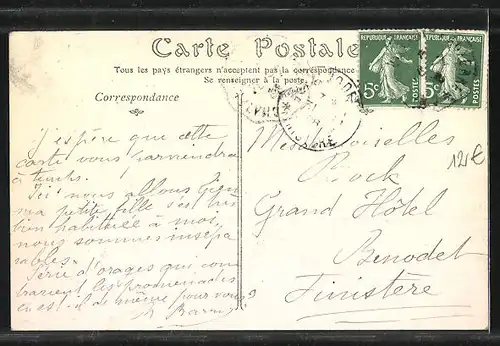 Carte Postale
Tous les pays étrangers n'acceptent pas la correspondance
Se renseigner à la poste.
REPUBLIQUE FRANÇAISE
5c
POSTES
REPUBLIQUE FRANÇAISE
5c
POSTES
Correspondance
J'espère que cette
carte vous parviendra
à temps.
Ici nous allons
ma petite fille s'est très
bien habituée à moi,
nous sommes insépa
rables.
Série d'orages qui con
trarient les promenades
en est-il de même pour vous?
Mesdemoiselles
Grand Hôtel
Benodet
Finistère
12€